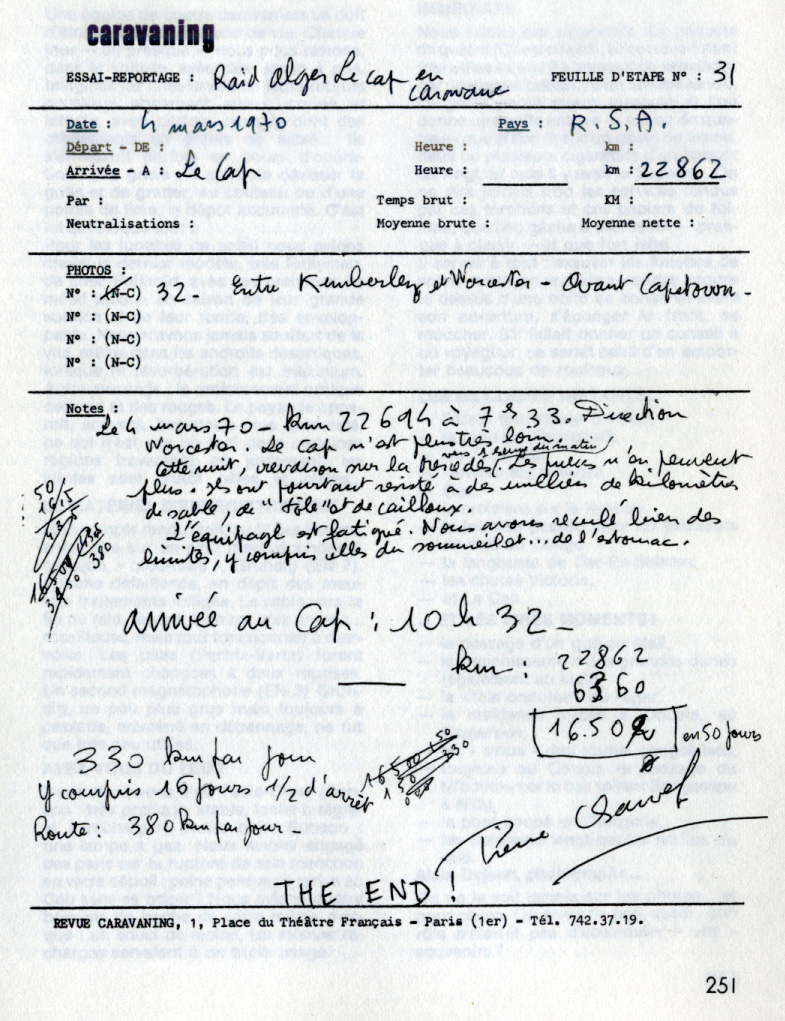 caravaning
ESSAI-REPORTAGE : Raid Alger Le Cap en caravane FEUILLE D'ETAPE N° : 31
Date : 4 mars 1970 Pays : R.S.A.
Départ - DE : Heure : km :
Arrivée - A : Le Cap Heure : km : 22862
Par : Temps brut : KM :
Neutralisations : Moyenne brute : Moyenne nette :
PHOTOS :
N° : (N-C) 32 - Entre Kimberley et Worcester - Avant Capetown -
N° : (N-C)
N° : (N-C)
N° : (N-C)
Notes :
Le 4 mars 70 - km 22694 à 7h 33. Direction
Worcester. Le Cap n'est plus très loin.
vers 1 heure du matin
Cette nuit, crevaison sur la Mercedes. Les pneus n'en peuvent
plus. Ils ont pourtant résisté à des milliers de kilomètres
de sable, de "tôle" et de cailloux.
L'équipage est fatigué. Nous avons reculé bien des
limites, y compris celles du sommeil et... de l'estomac.
Arrivée au Cap : 10 h 32
km : 22862
6360
16.502 en 50 jours
330 km par jour
y compris 16 jours 1/2 d'arrêt
Route : 380 km par jour
Pierre
THE END !
REVUE CARAVANING, 1, Place du Théâtre Français - Paris (1er) - Tél. 742.37.19.
251